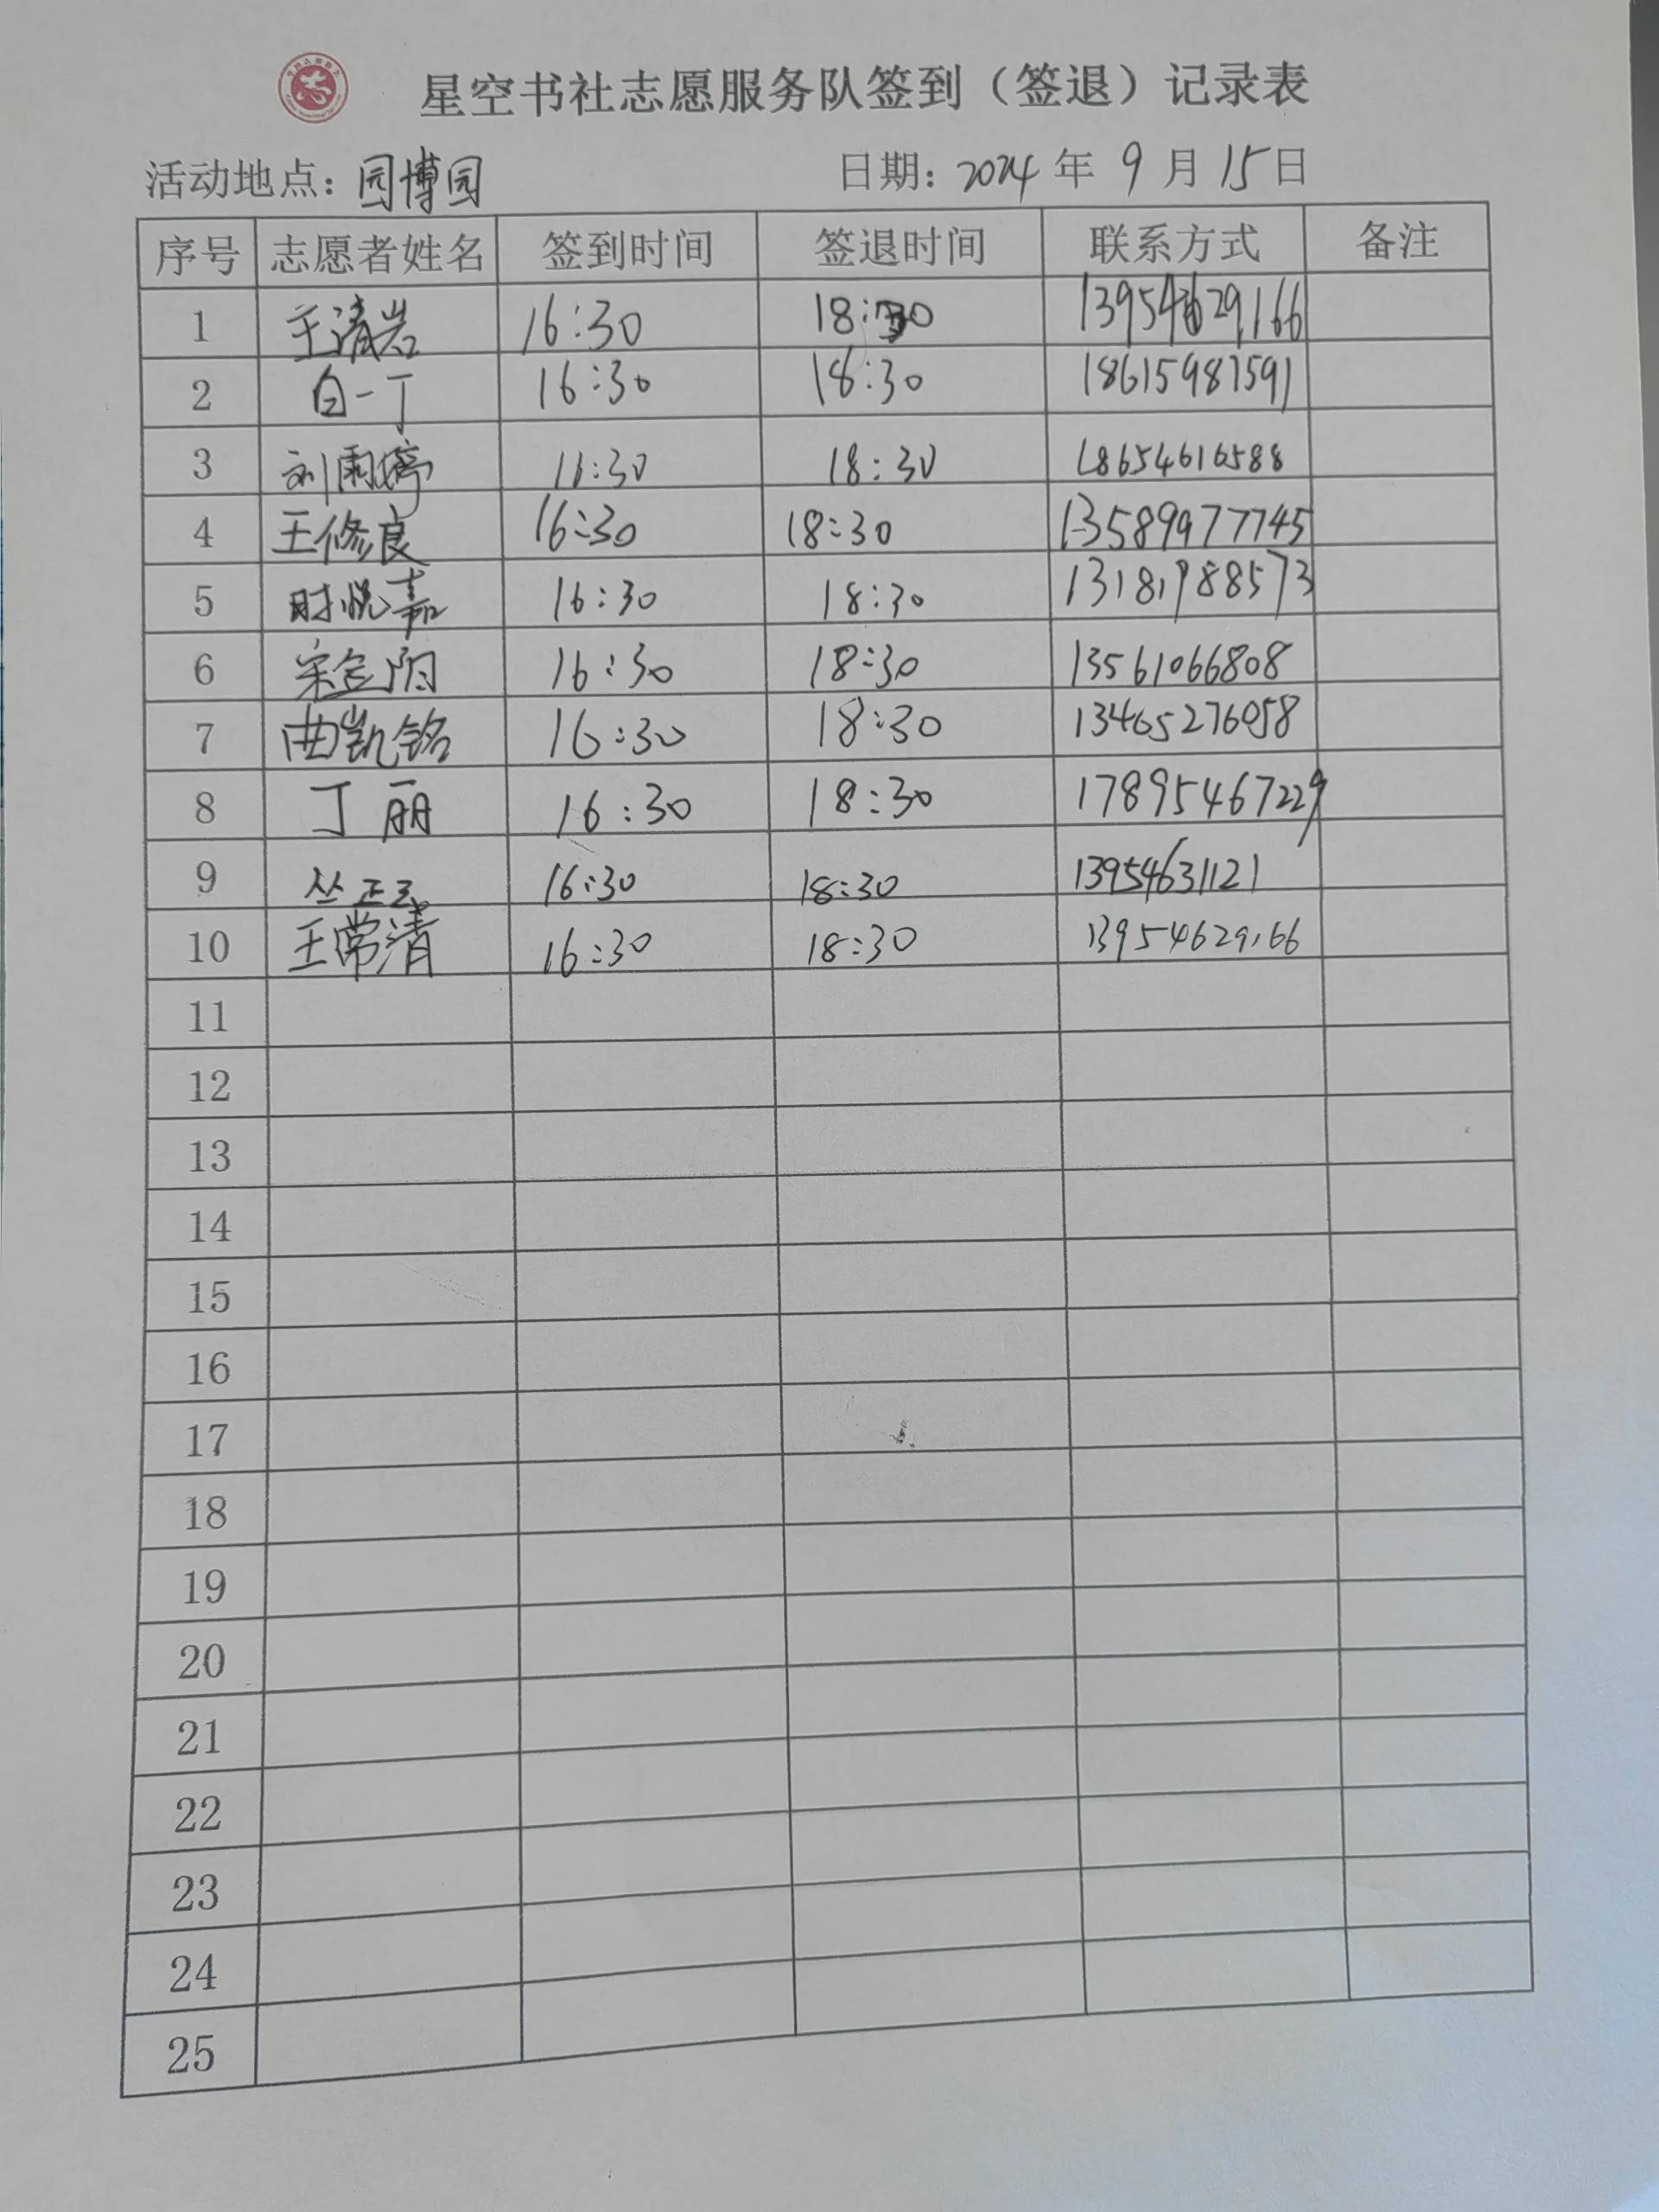 星空书社志愿服务队签到（签退）记录表
活动地点：园博园 日期：2024年9月15日
序号 志愿者姓名 签到时间 签退时间 联系方式 备注
1 王清岩 16:30 18:30 13954629166
2 白一丁 16:30 18:30 18615987591
3 刘雨婷 16:30 18:30 18654616588
4 王修良 16:30 18:30 13589977745
5 时悦嘉 16:30 18:30 13181988573
6 16:30 18:30 13561066808
7 曲凯铭 16:30 18:30 13465276058
8 丁丽 16:30 18:30 17895467229
9 16:30 18:30 13954631121
10 王常清 16:30 18:30 13954629166
11
12
13
14
15
16
17
18
19
20
21
22
23
24
25